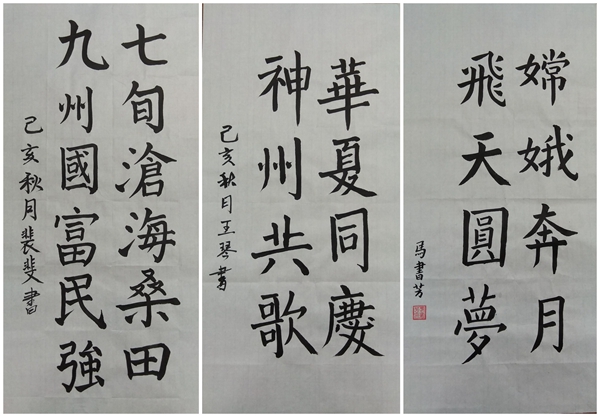 七旬滄海桑田
九州國富民強
己亥秋月裴斐書
華夏同慶
神州共歌
己亥秋月王琴書
嫦娥奔月
飛天圓夢
馬書芳